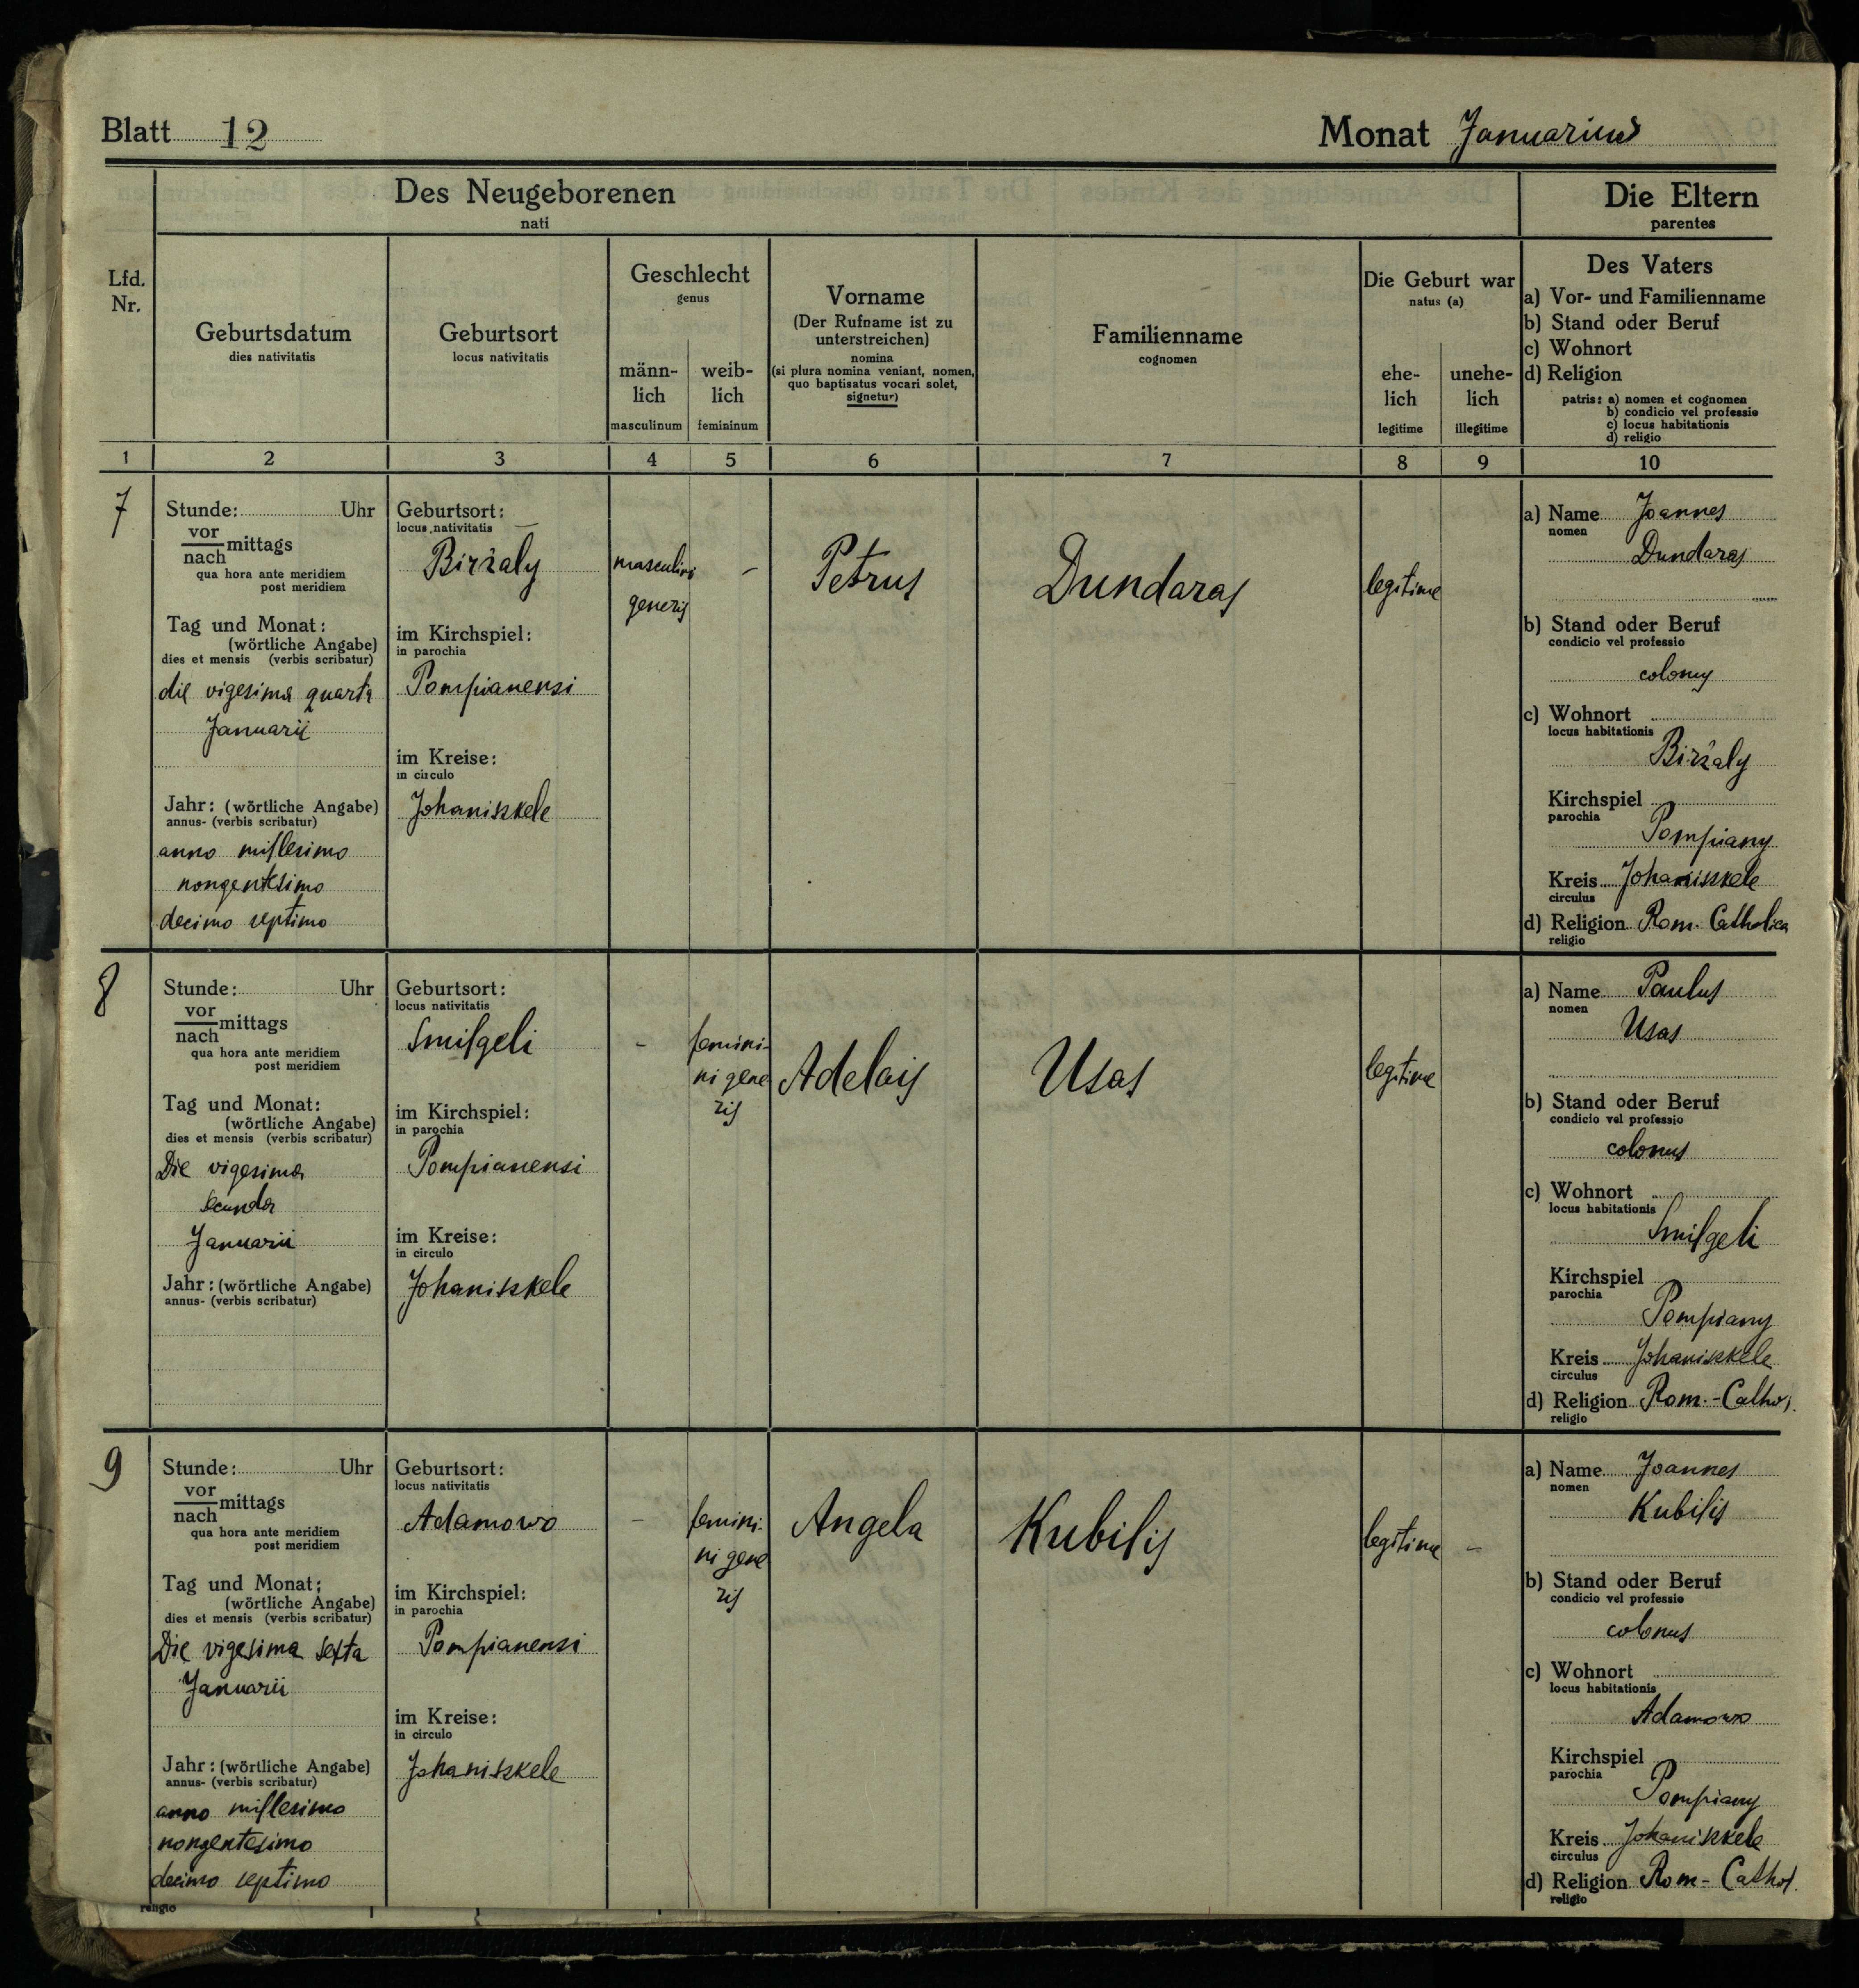 Blatt 12
Monat Januarius
Des Neugeborenen
nati
Die Eltern
parentes
Lfd.
Nr.
Geburtsdatum
dies nativitatis
Geburtsort
locus nativitatis
Geschlecht
genus
männ-
lich
masculinum
weib-
lich
femininum
Vorname
(Der Rufname ist zu
unterstreichen)
nomina
(si plura nomina veniant, nomen,
quo baptisatus vocari solet,
signetur)
Familienname
cognomen
Die Geburt war
natus (a)
ehe-
lich
legitime
unehe-
lich
illegitime
Des Vaters
a) Vor- und Familienname
b) Stand oder Beruf
c) Wohnort
d) Religion
patris: a) nomen et cognomen
b) condicio vel professio
c) locus habitationis
d) religio
1 2 3 4 5 6 7 8 9 10
7
Stunde: Uhr
vor
nach mittags
qua hora ante meridiem
post meridiem
Tag und Monat:
(wörtliche Angabe)
dies et mensis (verbis scribatur)
die vigesima quarta
Januarii
Jahr: (wörtliche Angabe)
annus- (verbis scribatur)
anno millesimo
nongentesimo
decimo septimo
Geburtsort:
locus nativitatis
Biržaly
im Kirchspiel:
in parochia
Pompianensi
im Kreise:
in circulo
Johaniszkele
masculini
generis
-
Petrus
Dundaras
legitime
a) Name Joannes
nomen
Dundaras
b) Stand oder Beruf
condicio vel professio
colonus
c) Wohnort
locus habitationis
Biržaly
Kirchspiel
parochia
Pompiany
Kreis Johaniszkele
circulus
d) Religion Rom. Catholica
religio
8
Stunde: Uhr
vor
nach mittags
qua hora ante meridiem
post meridiem
Tag und Monat:
(wörtliche Angabe)
dies et mensis (verbis scribatur)
Die vigesima
secunda
Januarii
Jahr: (wörtliche Angabe)
annus- (verbis scribatur)
Geburtsort:
locus nativitatis
Smilgeli
im Kirchspiel:
in parochia
Pompianensi
im Kreise:
in circulo
Johaniszkele
-
femini-
ni gene
ris
Adelais
Usas
legitime
a) Name Paulus
nomen
Usas
b) Stand oder Beruf
condicio vel professio
colonus
c) Wohnort
locus habitationis
Smilgeli
Kirchspiel
parochia
Pompiany
Kreis Johaniszkele
circulus
d) Religion Rom.-Cathol.
religio
9
Stunde: Uhr
vor
nach mittags
qua hora ante meridiem
post meridiem
Tag und Monat:
(wörtliche Angabe)
dies et mensis (verbis scribatur)
Die vigesima sexta
Januarii
Jahr: (wörtliche Angabe)
annus- (verbis scribatur)
anno millesimo
nongentesimo
decimo septimo
Geburtsort:
locus nativitatis
Adamowo
im Kirchspiel:
in parochia
Pompianensi
im Kreise:
in circulo
Johaniszkele
-
femini-
ni gene
ris
Angela
Kubilis
legitime
-
a) Name Joannes
nomen
Kubilis
b) Stand oder Beruf
condicio vel professio
colonus
c) Wohnort
locus habitationis
Adamowo
Kirchspiel
parochia
Pompiany
Kreis Johaniszkele
circulus
d) Religion Rom-Cathol.
religio
religio